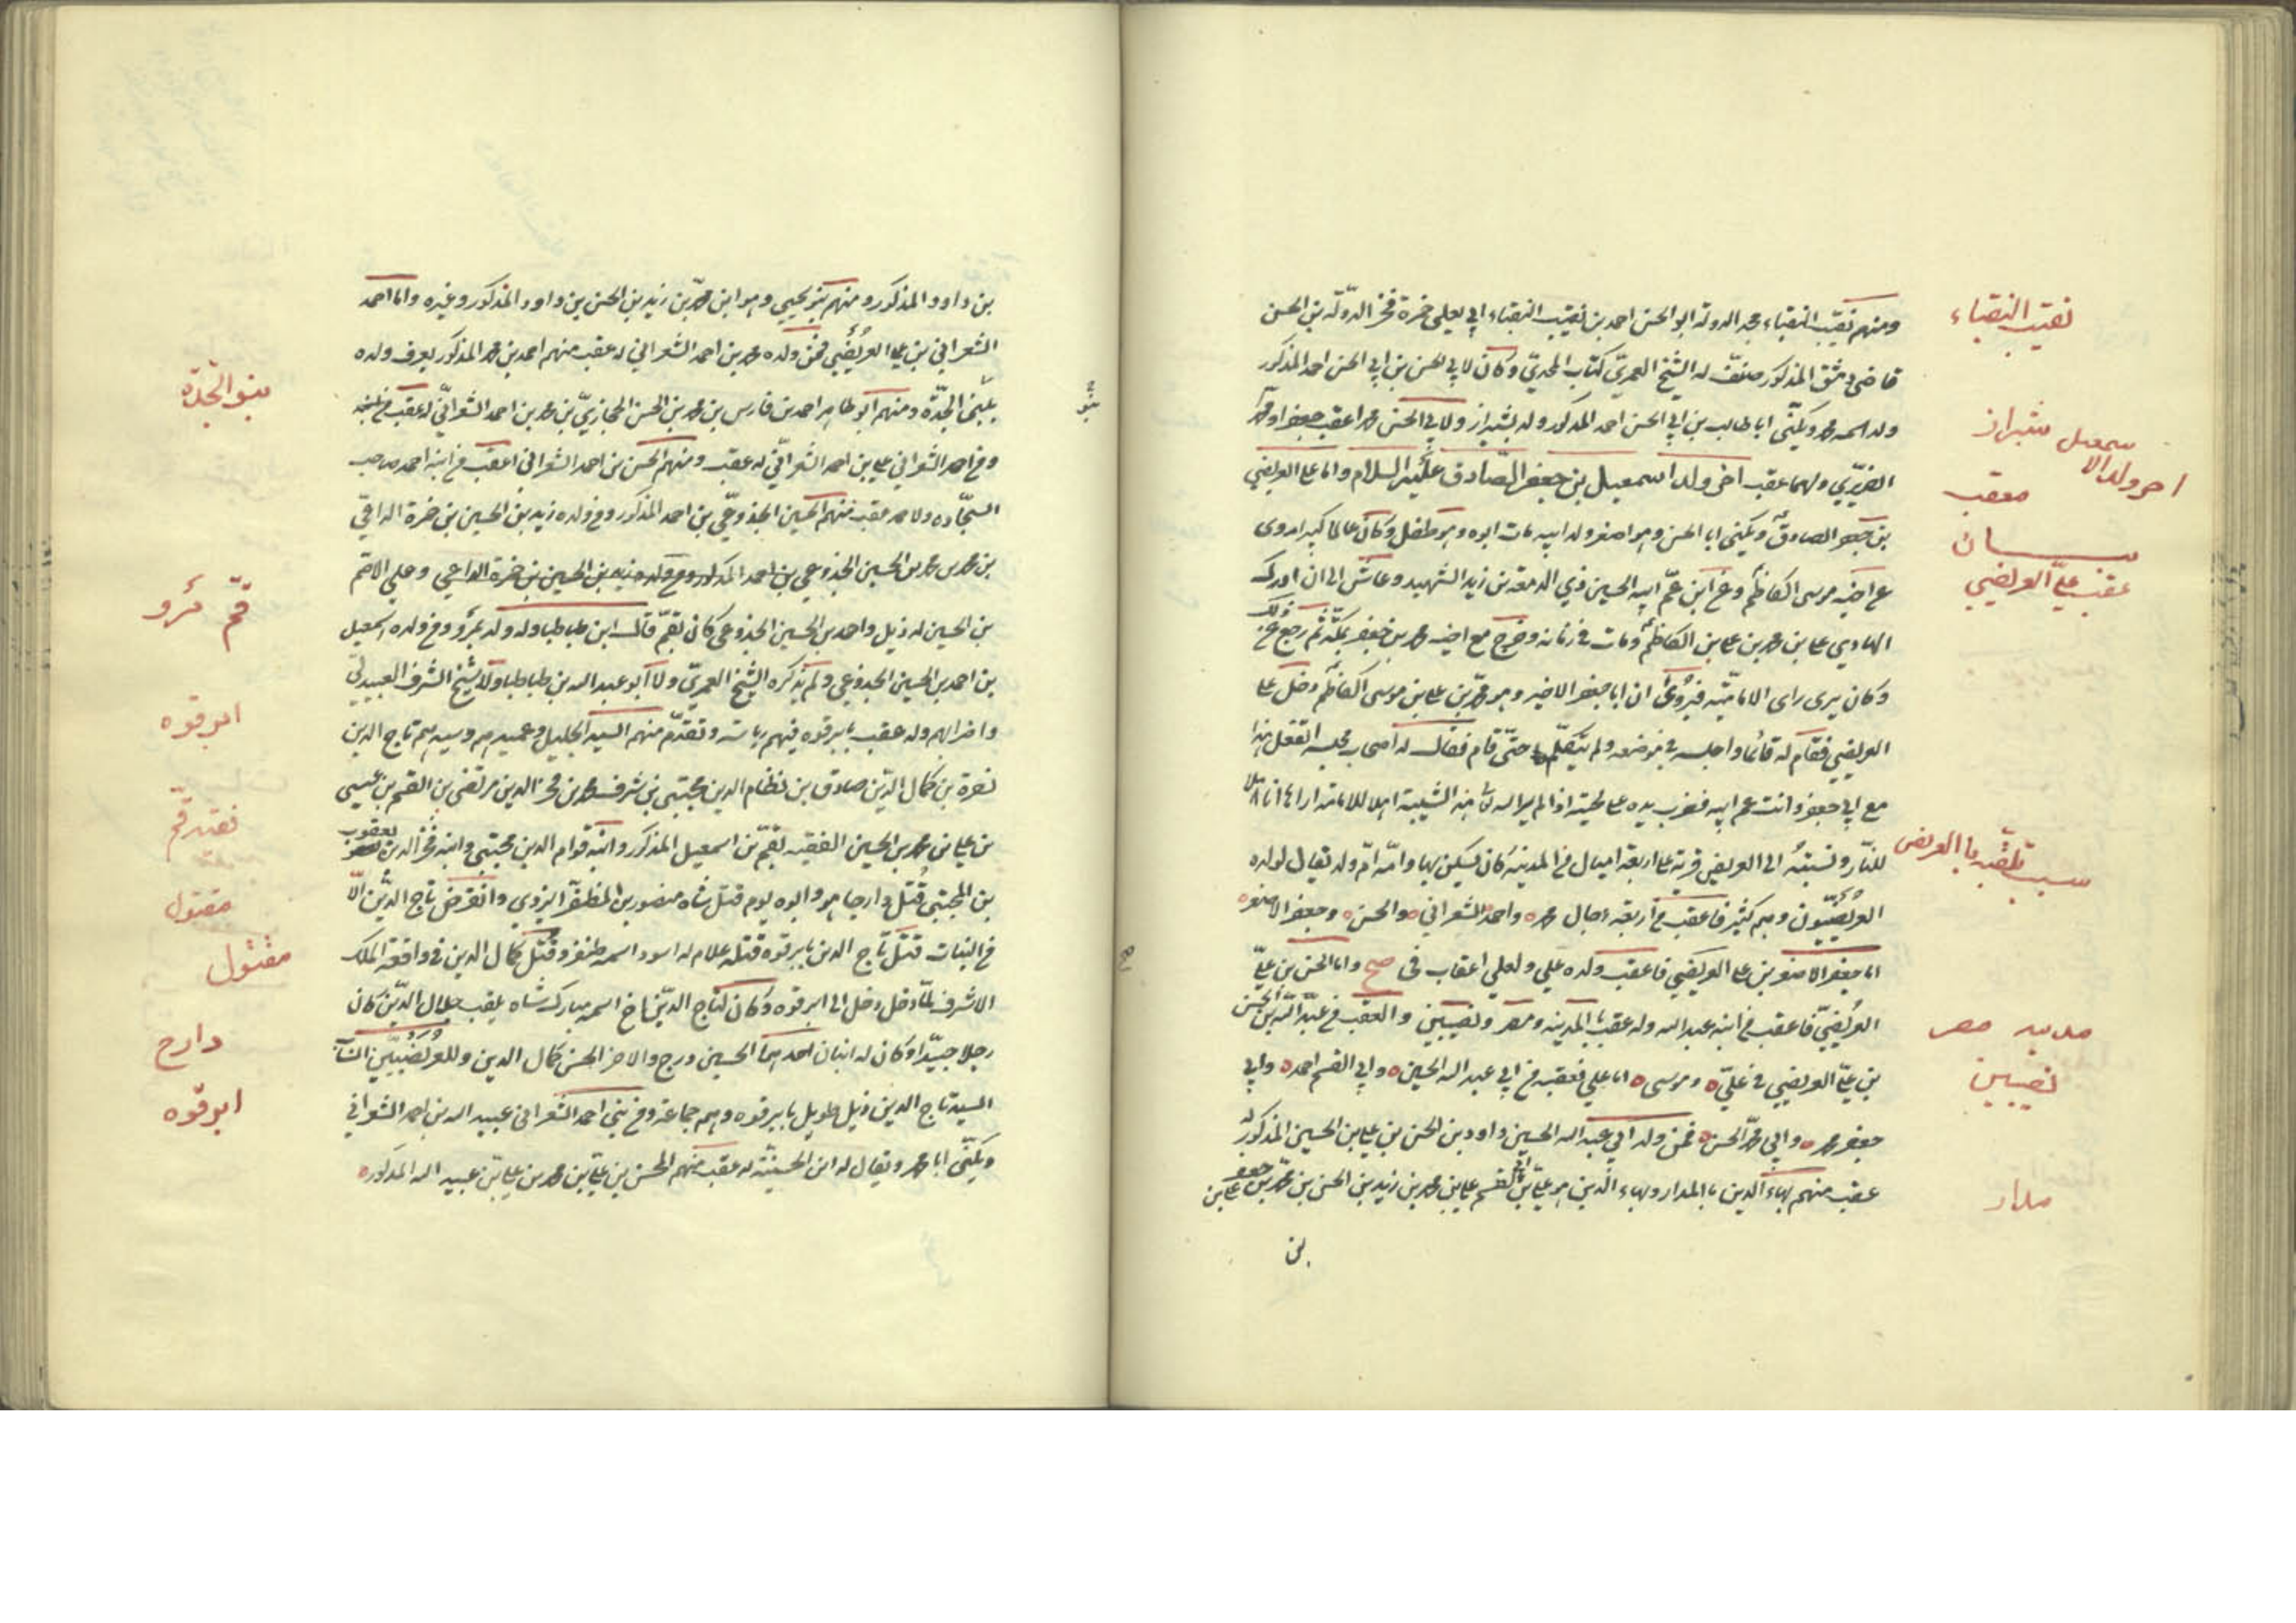 ومنهم نقيب النقباء مجد الدولة ابو الحسن احمد بن نقيب النقباء ابي يعلى حمزة فخر الدولة بن الحسن
قاضي دمشق المذكور صنف له الشيخ العمري كتاب المجدي وكان لابي الحسن بن ابي الحسن احمد المذكور
ولد اسمه محمد ويكنى ابا طالب بن ابي الحسن احمد المذكور وله بشيراز ولابي الحسن محمد اعقب جعفر او محمد
الضريري ولهما عقب اخر ولد اسمعيل بن جعفر الصادق عليه السلام واما علي العريضي
بن جعفر الصادق ويكنى ابا الحسن وهو اصغر ولد ابيه مات ابوه وهو طفل وكان عالما كبيرا روى
عن اخيه موسى الكاظم وعن ابن عم ابيه الحسين ذي الدمعة بن زيد الشهيد وعاش الى ان ادرك
الهادي علي بن محمد بن علي بن الكاظم ومات في زمانه وخرج مع اخيه محمد بن جعفر بمكة ثم رجع عن ذلك
وكان يرى راى الامامية فيروى ان ابا جعفر الاخير وهو محمد بن علي بن موسى الكاظم دخل على
العريضي فقام له قائما واجلسه في موضعه ولم يتكلم حتى قام فقال له اصحاب مجلسه اتفعل هذا
مع ابي جعفر وانت عم ابيه فضرب بيده على لحيته اذا لم ير الله هذه الشيبة اهلا للامامة اراها انا اهلا
للنار ونسبته الى العريض قرية على اربعة اميال من المدينة كان يسكن بها وامه ام ولد يقال لولده
العريضيون وهم كثير فاعقب من اربعة رجال محمد ٥ واحمد الشعراني ٥ والحسن ٥ وجعفر الاصغر ٥
اما جعفر الاصغر بن علي العريضي فاعقب ولده علي ولعلي اعقاب في صح واما الحسن بن علي
العريضي فاعقب من ابنه عبد الله وله عقب بالمدينة ومصر ونصيبين والعقب في عبد الله بن الحسن
بن علي العريضي في علي ٥ وموسى ٥ اما علي فعقبه من ابي عبد الله الحسين ٥ وابي القسم احمد ٥ وابي
جعفر محمد ٥ وابي محمد الحسن ٥ فمن ولد ابي عبد الله الحسين داود بن الحسن بن علي بن الحسين المذكور له
عقب منهم بهاء الدين بالمدار وبهاء الدين هو علي بن ابي القسم علي بن محمد بن زيد بن الحسن بن محمد بن جعفر علي بن
بن
نقيب النقباء
شيراز
اخر ولد الاسمعيل
معقب
بيان
عقب علي العريضي
سبب تلقبه بالعريض
مدينه مصر
نصيبين
مدار
بن داود المذكور ومنهم بنو يحيى وهو ابن محمد بن زيد بن الحسن بن داود المذكور وغيره واما احمد
الشعراني بن علي العريضي فمن ولده محمد بن احمد الشعراني له عقب منهم احمد بن محمد المذكور يعرف ولده
ببني الجدة ومنهم ابو طاهر احمد بن فارس بن محمد بن الحسن الحجازي بن محمد بن احمد الشعراني له عقب
ومن احمد الشعراني علي بن احمد الشعراني له عقب ومنهم الحسن بن احمد الشعراني اعقب من ابنه احمد صاحب
السجاده ولا محمد عقب منهم الحسين الجذوعي بن احمد المذكور ومن ولده زيد بن الحسين بن حمزة الداعي
بن محمد بن محمد بن الحسين الجذوعي بن احمد المذكور ومن ولده زيد بن الحسين بن حمزة الداعي وعلي الاصم
بن الحسين له ذيل واحمد بن الحسين الجذوعي كان بقم قال ابن طباطبا وله ولد بمرو ومن ولده اسمعيل
بن احمد بن الحسين الجذوعي ولم يذكره الشيخ العمري ولا ابو عبد الله بن طباطبا ولا شيخ الشرف العبيدلي
واخرالهم وله عقب بابرقوه فيهم رياسة وتقدم منهم السيد الجليل وعميدهم وسيدهم تاج الدين
نصرة بن كمال الدين صادق بن نظام الدين مجتبى بن شرف محمد بن فخر الدين مرتضى بن القسم بن عيسى
بن علي بن محمد بن الحسين الفقيه بقم بن اسمعيل المذكور وابنه قوام الدين مجتبى وابنه فخر الدين يعقوب
بن المجتبى قتل دارجا هو وابوه يوم قتل شاه منصور بن المظفر اليزدي وانقرض تاج الدين الا
من البنات قتل تاج الدين بابرقوه قتله غلام له اسود اسمه طنفز وقتل كمال الدين في واقعة الملك
الاشرف لما دخل دخل الى ابرقوه وكان لتاج الدين اخ اسمه مبارك شاه يلقب جلال الدين كان
رجلا جيدا وكان له ابنان احدهما الحسين ودرج والاخر الحسن كمال الدين وللعريضيين
السيد تاج الدين ذيل طويل بابرقوه وهم جماعة ومن بني احمد الشعراني عبيد الله بن احمد الشعراني
ويكنى ابا محمد ويقال له ابن الحسينية له عقب منهم الحسن بن علي بن محمد بن علي بن عبيد الله المذكور ٥
بنو الجدة
قم مرو
ابرقوه
فقيه قم
مقتول
مقتول
دارج
ابرقوه